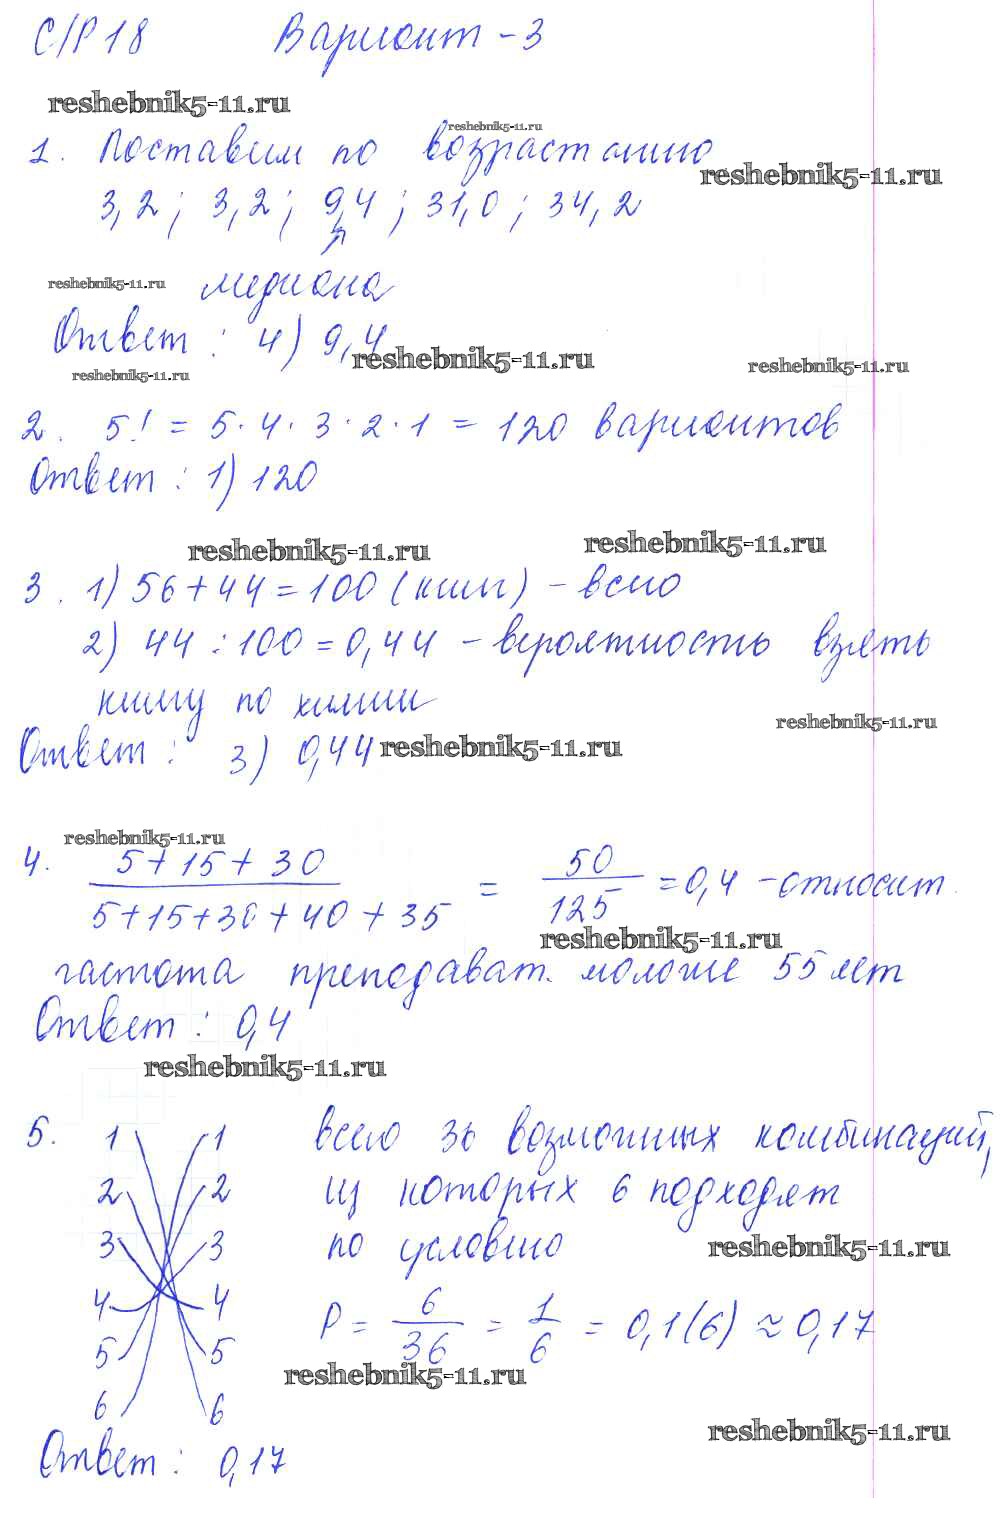 С/Р 18 Вариант - 3
reshebnik5-11.ru
reshebnik5-11.ru
1. Поставим по возрастанию
reshebnik5-11.ru
3,2; 3,2; 9,4; 31,0; 34,2
reshebnik5-11.ru
медиана
Ответ: 4) 9,4
reshebnik5-11.ru
reshebnik5-11.ru
reshebnik5-11.ru
2. 5! = 5·4·3·2·1 = 120 вариантов
Ответ: 1) 120
reshebnik5-11.ru
reshebnik5-11.ru
3. 1) 56+44=100 (книг) - всего
2) 44:100=0,44 - вероятность взять
книгу по химии
reshebnik5-11.ru
Ответ: 3) 0,44
reshebnik5-11.ru
reshebnik5-11.ru
4. 5+15+30 / 5+15+30+40+35 = 50/125 = 0,4 - относит.
reshebnik5-11.ru
частота преподават. моложе 55 лет
Ответ: 0,4
reshebnik5-11.ru
5. 1 1 всего 36 возможных комбинаций,
2 2 из которых 6 подходят
3 3 по условию
reshebnik5-11.ru
4 4 P = 6/36 = 1/6 = 0,1(6) ≈ 0,17
5 5
reshebnik5-11.ru
6 6
reshebnik5-11.ru
Ответ: 0,17